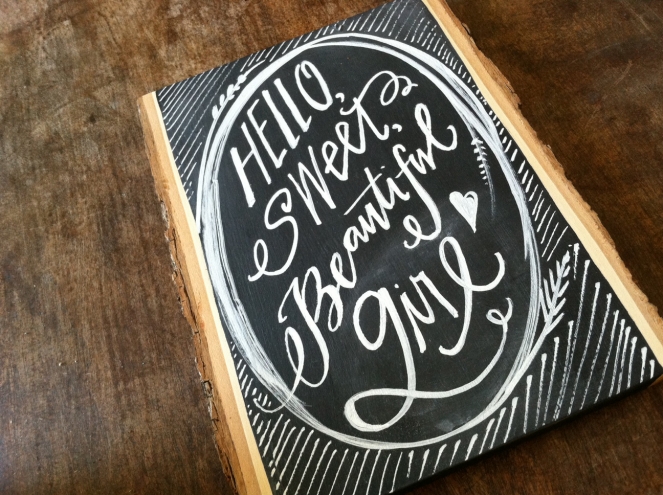 HELLO,
sweet,
Beautiful
girl